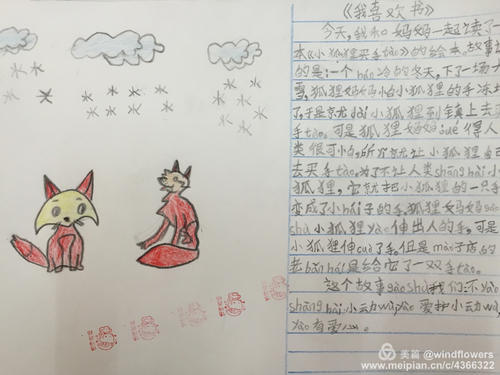 《我喜欢书》
今天,我和妈妈一起读了一
本《小狐狸买手tào》的绘本,故事
的是:一个hán冷的冬天,下了一场大
雪,狐狸妈妈怕小狐狸的手冻
了,于是就dài小狐狸到镇上去
手tào。可是狐狸妈妈jué得人
类很可怕,所以就让小狐狸自
去买手tào,为了不让人类shānghài小
狐狸,它就把小狐狸的一只
变成了小hái子的手,狐狸妈妈gào
sha小狐狸yào伸出人的手,可是
小狐狸伸cuò了手。但是mào子店的
老bǎn hái是给它了一双手tào。
这个故事gàosha我们:不yào
shānghài小动wù,yào爱护小动wù,
yào有爱心。
美篇 @windflowers
www.meipian.cn/c/4366322